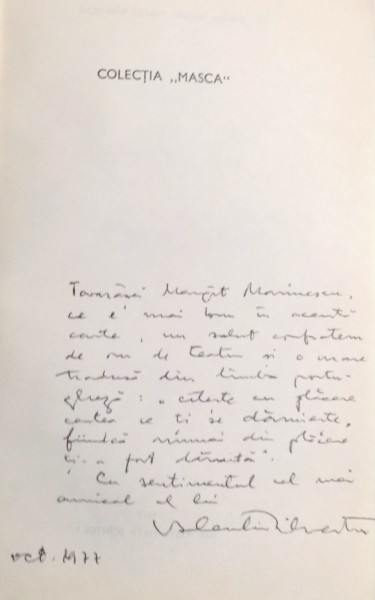 COLECȚIA „MASCA“
Tovarășei Margit Marinescu,
ce e mai bun în această
carte, un salut confratern
de om de teatru și o
tradusă din limba portu-
gheză: „citește cu plăcere
cartea ce ți se dăruiește,
fiindcă numai din plăcere
ți-a fost dăruită“.
Cu sentimentul cel mai
amical al lui
Valentin Silvestru
oct. 1977